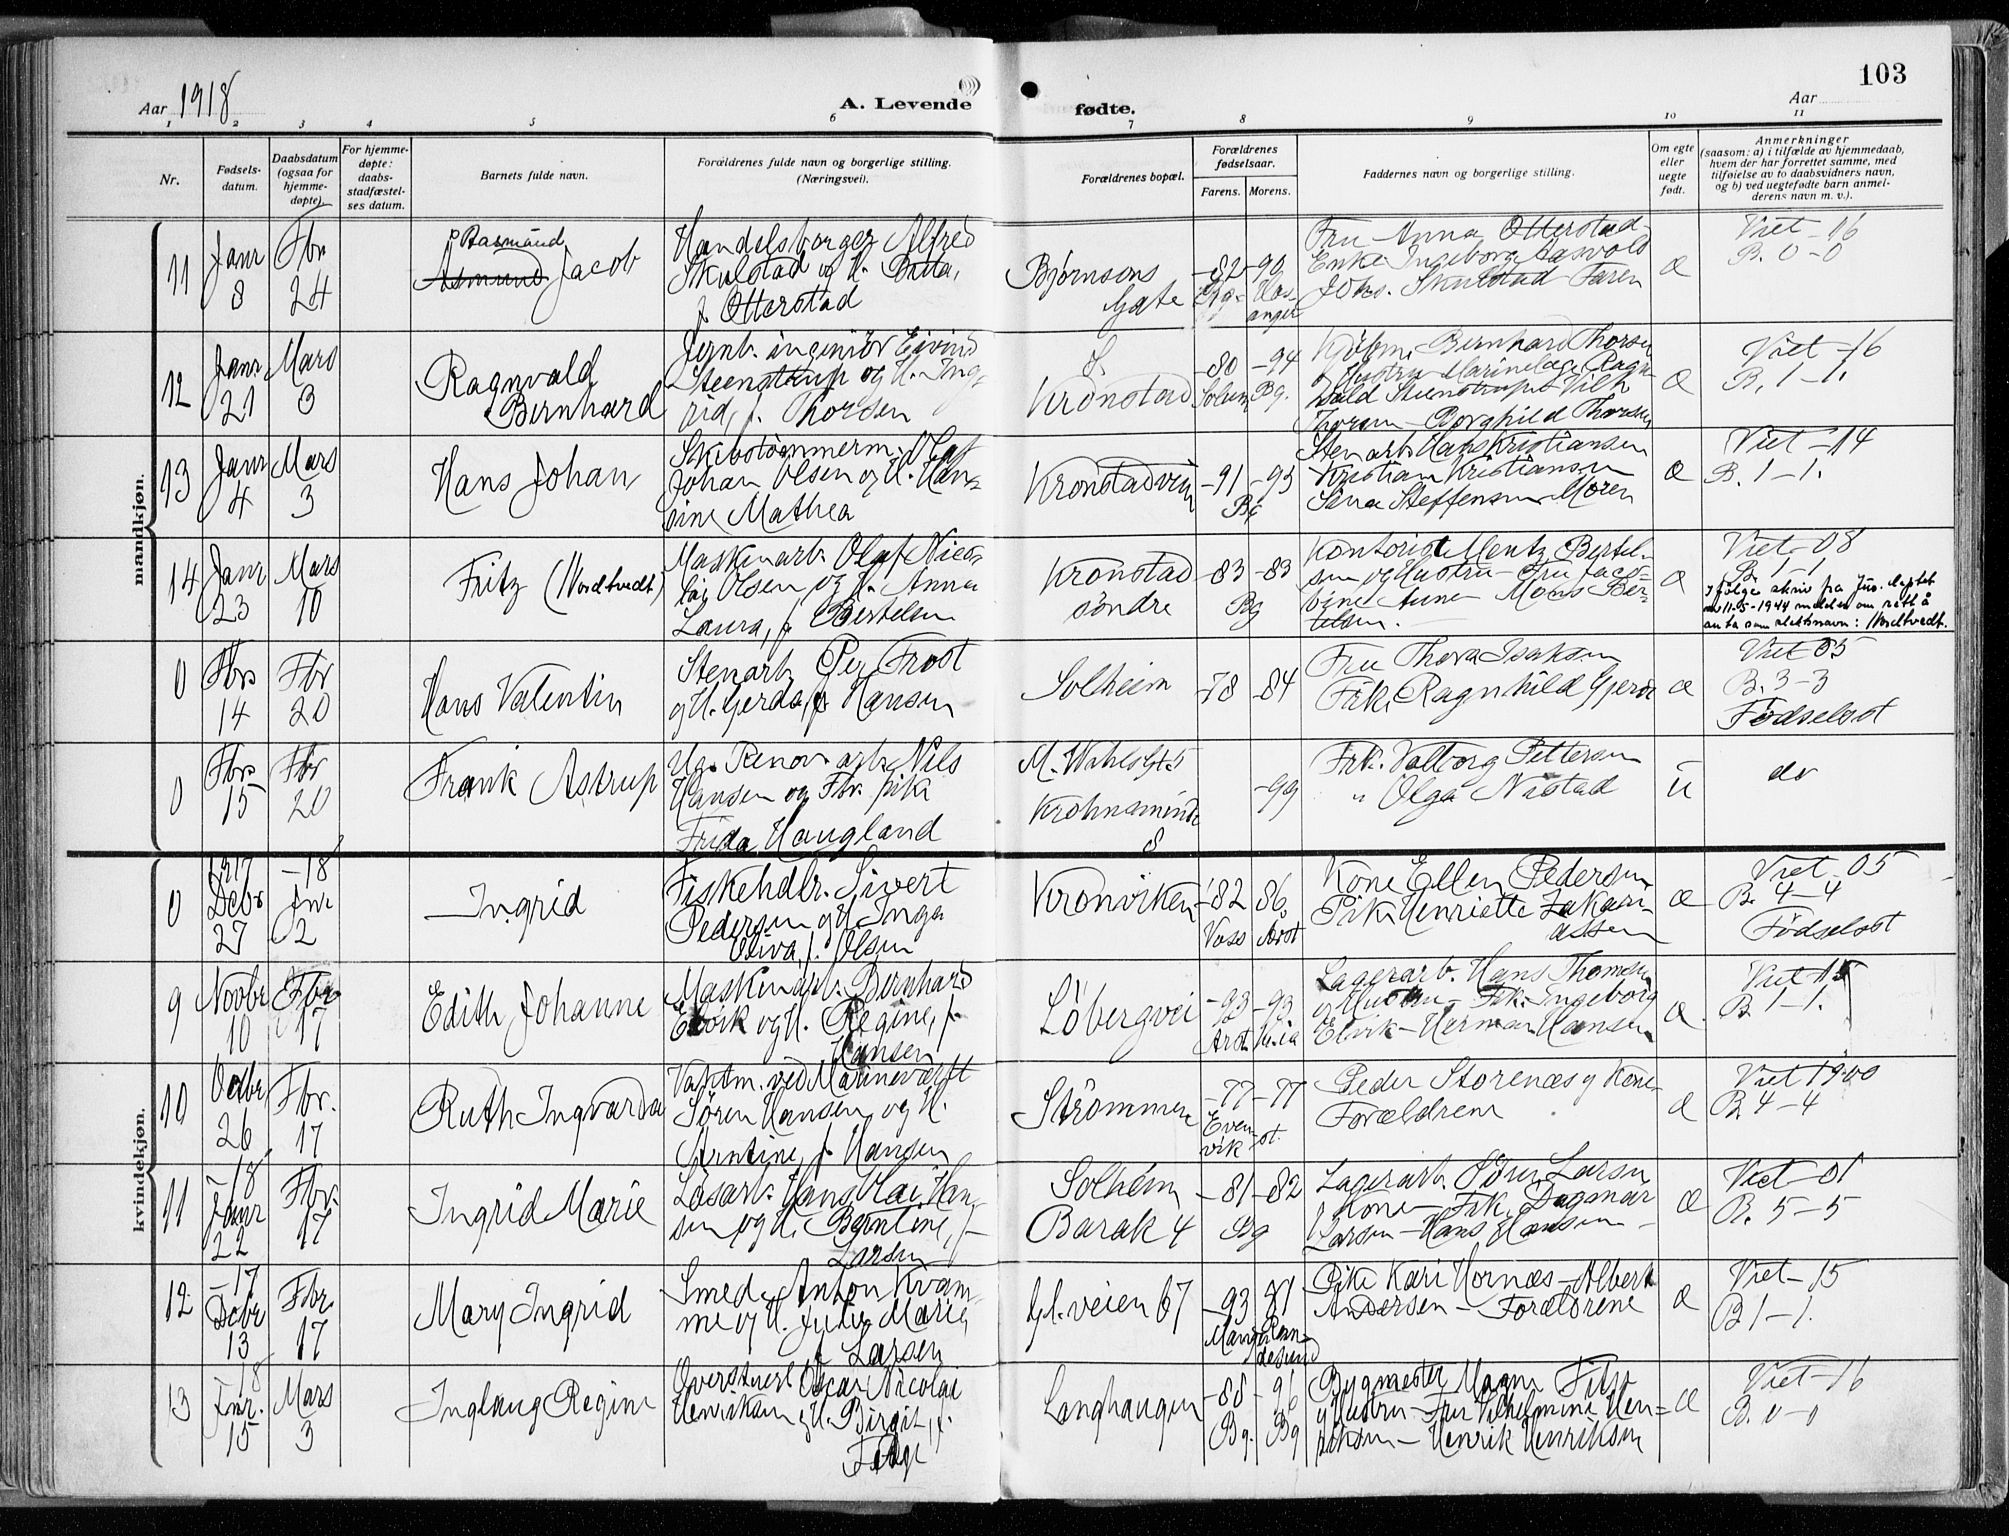 103
Aar 1918
A. Levende fødte.
Aar
1 2 3 4 5 6 7 8 9 10 11
Nr.
Fødsels-
datum.
Daabsdatum
(ogsaa for
hjemme-
døpte)
For hjemme-
døpte:
daabs-
stadfæstel-
ses datum.
Barnets fulde navn.
Forældrenes fulde navn og borgerlige stilling.
(Næringsvei).
Forældrenes bopæl.
Forældrenes
fødselsaar.
Farens. Morens.
Faddernes navn og borgerlige stilling.
Om egte
eller
uegte
født.
Anmerkninger
(saasom: a) i tilfælde av hjemmedaab,
hvem der har forrettet samme, med
tilføielse av to daabsvidners navn,
og b) ved uegtefødte barn anmel-
derens navn m. v.).
mandkjøn.
11
Janr
8
Fbr
24
Rasmund
Asmund Jacob
Handelsborger Alfred
Skulstad og H.
f. Otterstad
Bjørnsons
Gate
-82 -90
Fru Anna Otterstad
Enke Ingeborg Aasvold
Johs. Skulstad Faren
æ
Viet -16
B. 0-0
12
Janr
21
Mars
3
Ragnvald
Bernhard
Jernb. ingeniør Eivind
Steenstrup og H. Ing-
rid, f. Thorsen
S.
Kronstad
-80 -94
Bg.
Kjøbm. Bernhard Thorsen
og Hustru
Thorsen - Borghild Thorsen
æ
Viet -16
B. 1-1.
13
Janr
4
Mars
3
Hans Johan
Skibstømmerm. Olaf
Johan Olsen og H. Han-
sine Mathea
Kronstadvin
-91 -93
Bg
Stenarb. Hans Kristiansen
Kristian Kristiansen
Sina Steffensen Moren
æ
Viet -14
B. 1-1.
14
Janr
23
Mars
10
Fritz (Nordtvedt)
Maskinarb. Olaf Nico-
lai Olsen og H. Anna
Laura, f. Bertelsen
Kronstad
søndre
-83 -83
Bg
Kontorist Mentz Bertel-
sen og Hustru - Fru Jaco-
bine Aune - Mons Ber-
telsen.
æ
Viet -08
B. 1-1
Ifølge skriv fra Jus. dept.
av 11-5-1944 meldes om rett å
anta som slektsnavn: Nordtvedt.
0
Fbr
14
Fbr
20
Hans Valentin
Stenarb. Per Frost
og H. Gerda, f. Hansen
Solheim
-78 -84
Fru Thora Isaksen
Frk. Ragnhild Gjerde
æ
Viet 05
B. 3-3
Fødselsst
0
Fbr
15
Fbr
20
Frank Astrup
Ug. Renov. arb. Nils
Hansen og Fbr. pike
Frida Haugland
M. Wihlsgt 5
Krohnsminde
-99
Frk. Valborg Pettersen
" Olga Nistad
u
do
kvindekjøn.
0
1917
Debr
27
-18
Jnr
2
Ingrid
Fiskehdlr. Sivert
Pedersen og H. Inga
Oliva, f. Olsen
Kronviken
-82 86.
Voss
Kone Ellen Pedersen
Pike Henriette Zakari-
assen
æ
Viet -05
B. 4-4
Fødselsst
9
Novbr
10
Fbr
17
Edith Johanne
Maskinarb. Bernhard
Elvik og H. Regine, f.
Hansen
Løbergvei
-93 -93
Lagerarb. Hans Thomsen
og Hustru - Frk. Ingeborg
Elvik - Herman Hansen
æ
Viet 15
B 1-1.
10
Octbr
26
Fbr.
17
Ruth Ingvarda
Vaktm. ved Marineværft
Søren Hansen og H.
Arntine, f. Hansen
Strømmen
-77 -77
Even-
vik
Peder Storenæs og Kone
Forældrene
æ
Viet 1900
B 4-4
11
-18
Janr
22
Fbr.
17
Ingrid Marie
Løsarb. Hans Olai Han-
sen og H. Berntine, f.
Larsen
Solheim
Barak 4
-81 -82
Bg
Lagerarb. Søren Larsen
Kone - Frk. Dagmar
Larsen - Hans Hansen -
æ
Viet -01
B. 5-5
12
-17
Debr
13
Fbr.
17
Mary Ingrid
Smed Anton Kvam-
me og H. Julie Marie
f. Larsen
Gl. veien 67
-93 81
Ran-
desund
Pike Kari Hornæs - Albert
Andersen - Forældrene
æ
Viet -15
B 1-1.
13
-18
Jnr.
15
Mars
3
Inglaug Regine
Overstuert Oscar Nicolai
Henriksen og H. Birgit, f.
Langhaugen
-88 -96
Bg. Bg
Bygmester Magne
og Hustru - Fru Vilhelmine Hen-
riksen - Henrik Henriksen
æ
Viet -16
B. 0-0